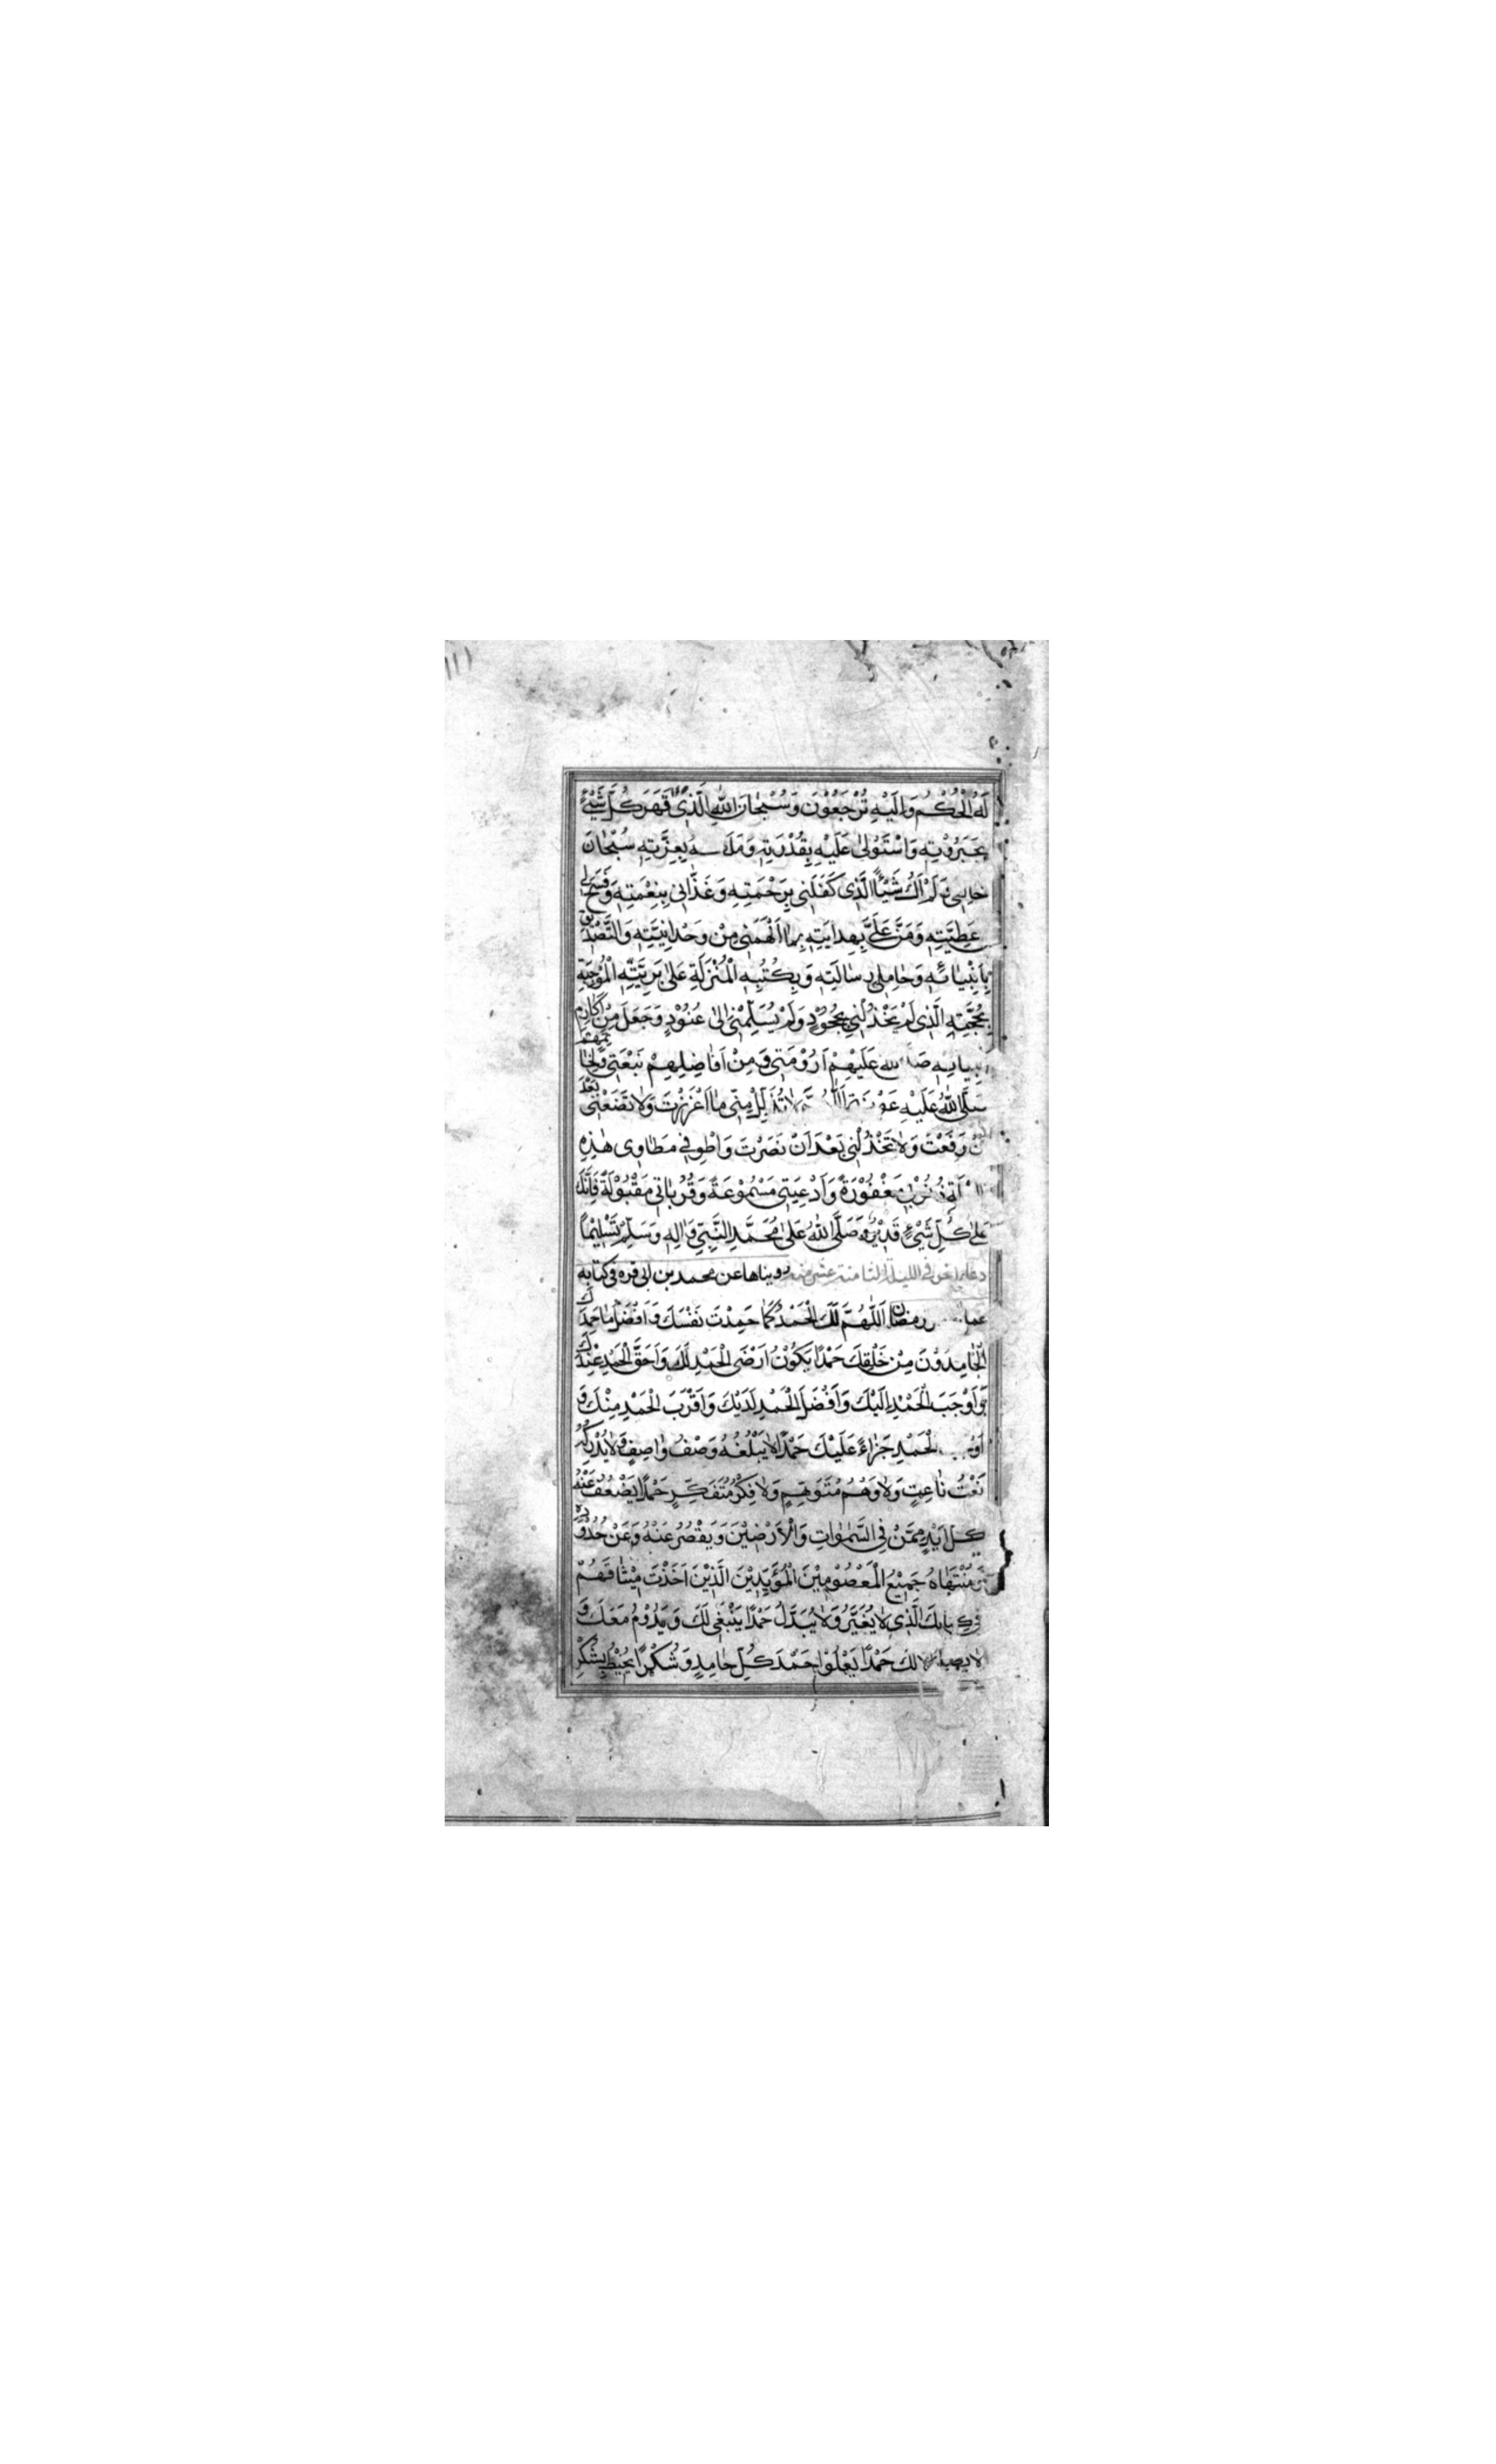 ١١١
لَهُ الْحُكْمُ وَاِلَيْهِ تُرْجَعُوْنَ وَسُبْحٰانَ اللّٰهِ الَّذِى قَهَرَ كُلَّ شَيْءٍ
بِجَبَرُوْتِهِ وَاسْتَوْلىٰ عَلَيْهِ بِقُدْرَتِهِ وَمَلَكَهُ بِعِزَّتِهِ سُبْحٰانَ
خالِقى وَلَمْ اَكُ شَيْئًا الَّذِى كَفَلَنِى بِرَحْمَتِهِ وَغَذّٰانِى بِنِعْمَتِهِ وَفَسَحَ لِى
عَطِيَّتِهِ وَمَنَّ عَلَيَّ بِهِدايَتِهِ بِما اَلْهَمَنِى مِنْ وَحْدٰانِيَّتِهِ وَالتَّصْدِيقِ
بِاَنْبِيٰائِهِ وَحٰامِلِى رِسٰالَتِهِ وَبِكُتُبِهِ الْمُنْزَلَةِ عَلىٰ بَرِيَّتِهِ الْمُوْجَبَةِ
بِحُجَّتِهِ الَّذِى لَمْ يَخْذُلْنِى بِجُحُوْدٍ وَلَمْ يُسَلِّمْنِى اِلىٰ عُنُوْدٍ وَجَعَلَ مِنْ اَكٰارِمِ
عَلَيْهِمْ اَرُوْمَتِى وَمِنْ اَفٰاضِلِهِمْ نَبْعَتِى وَلِخٰاتَمِهِمْ
صَلَّى اللّٰهُ عَلَيْهِ لاتُذَلِّلْ مِنِّى مٰا اَعْزَزْتَ وَلٰا تَضَعْنِى بَعْدَ
اَنْ رَفَعْتَ وَلٰا تَخْذُلْنِى بَعْدَ اَنْ نَصَرْتَ وَاطْوِ فِى مَطٰاوِى هٰذِهِ
ذُنُوْبِى مَغْفُوْرَةً وَاَدْعِيَتِى مَسْمُوْعَةً وَقُرُبٰاتِى مَقْبُوْلَةً فَاِنَّكَ
عَلىٰ كُلِّ شَيْءٍ قَدِيْرٌ وَصَلَّى اللّٰهُ عَلىٰ مُحَمَّدٍ النَّبِيِّ وَاٰلِهِ وَسَلَّمَ تَسْلِيْمًا
دعاء اخر فى الليلة الثامنة عشر منه رويناها عن محمد بن ابى قره فى كتابه
رمضان اَللّٰهُمَّ لَكَ الْحَمْدُ كَمٰا حَمِدْتَ نَفْسَكَ وَاَفْضَلَ مٰا حَمِدَكَ
الْحٰامِدُوْنَ مِنْ خَلْقِكَ حَمْدًا يَكُوْنُ اَرْضَى الْحَمْدِ لَكَ وَاَحَقَّ الْحَمْدِ عِنْدَكَ
وَاَوْجَبَ الْحَمْدِ اِلَيْكَ وَاَفْضَلَ الْحَمْدِ لَدَيْكَ وَاَقْرَبَ الْحَمْدِ مِنْكَ وَ
الْحَمْدِ جَزٰاءً عَلَيْكَ حَمْدًا لٰا يَبْلُغُهُ وَصْفُ وٰاصِفٍ وَلٰا يُدْرِكُهُ
نَعْتُ نٰاعِتٍ وَلٰا وَهْمُ مُتَوَهِّمٍ وَلٰا فِكْرُ مُتَفَكِّرٍ حَمْدًا يَضْعُفُ عَنْهُ
كُلُّ اَيْدٍ مِمَّنْ فِى السَّمٰوٰاتِ وَالْاَرَضِيْنَ وَيَقْصُرُ عَنْهُ وَعَنْ حُدُوْدِهِ
وَمُنْتَهٰاهُ جَمِيْعُ الْمَعْصُوْمِيْنَ الْمُؤَيَّدِيْنَ الَّذِيْنَ اَخَذْتَ مِيْثٰاقَهُمْ
فى كِتابِكَ الَّذِى لٰا يُغَيَّرُ وَلٰا يُبَدَّلُ حَمْدًا يَنْبَغِى لَكَ وَيَدُوْمُ مَعَكَ وَ
لا يصلح الا لك حَمْدًا يَعْلُوْا حَمْدَ كُلِّ حٰامِدٍ وَشُكْرًا يُحِيْطُ بِشُكْرِ